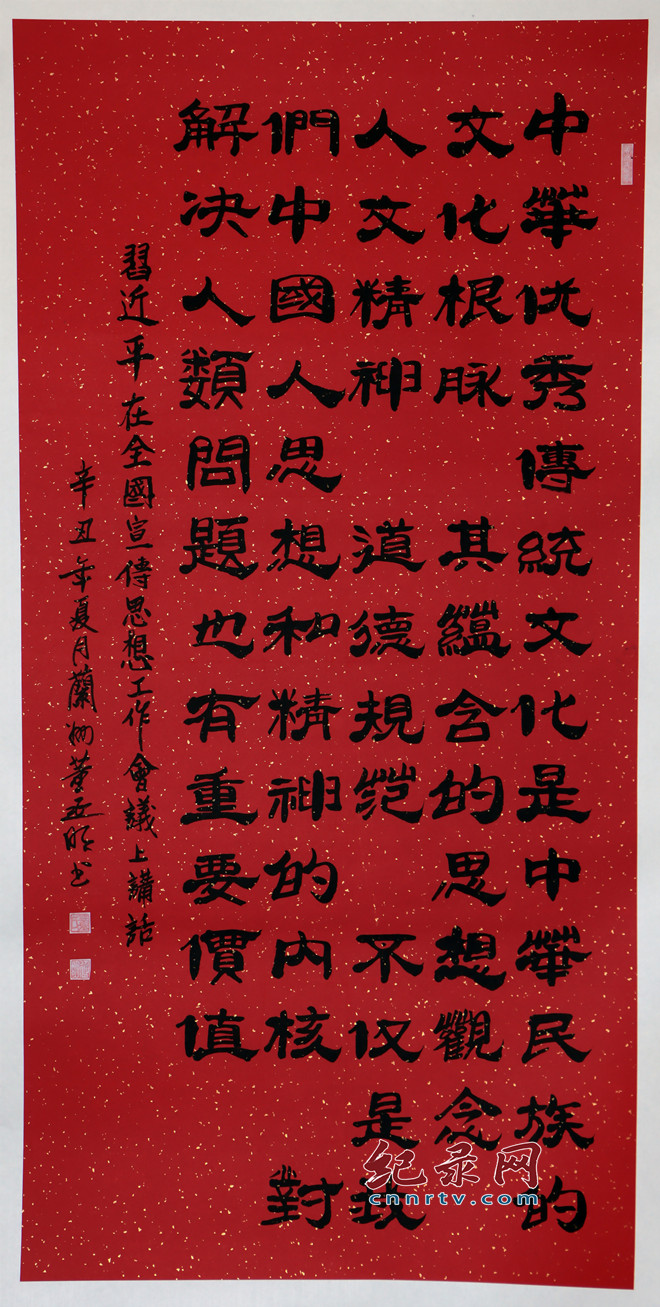 中華优秀傳統文化是中華民族的
文化根脉 其蘊含的思想觀念
人文精神 道德規范 不仅是我
們中國人思想和精神的内核 對
解决人類問題也有重要價值
習近平在全國宣傳思想工作會議上講話
辛丑年夏月蘭州董 书
纪录网
cnnrtv.com